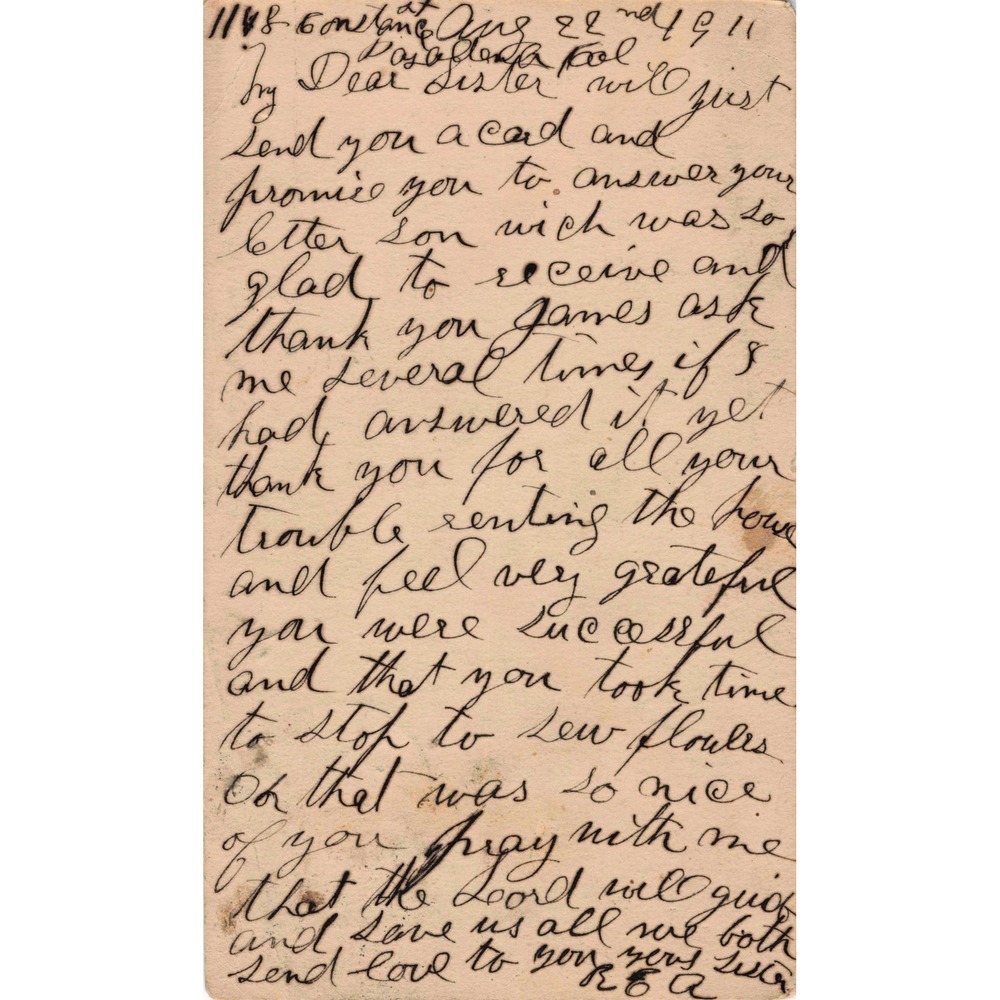 1148 Constance st Aug 22nd 1911
Pasadena Cal
My Dear Sister will just
send you a card and
promise you to answer your
letter son wich was so
glad to receive and
thank you James ask
me several times if I
had answered it yet
thank you for all your
trouble renting the house
and feel very grateful
you were successful
and that you took time
to stop to sew flowers
Oh that was so nice
of you pray with me
that the Lord will guid
and save us all we both
send love to you your sister
R E A